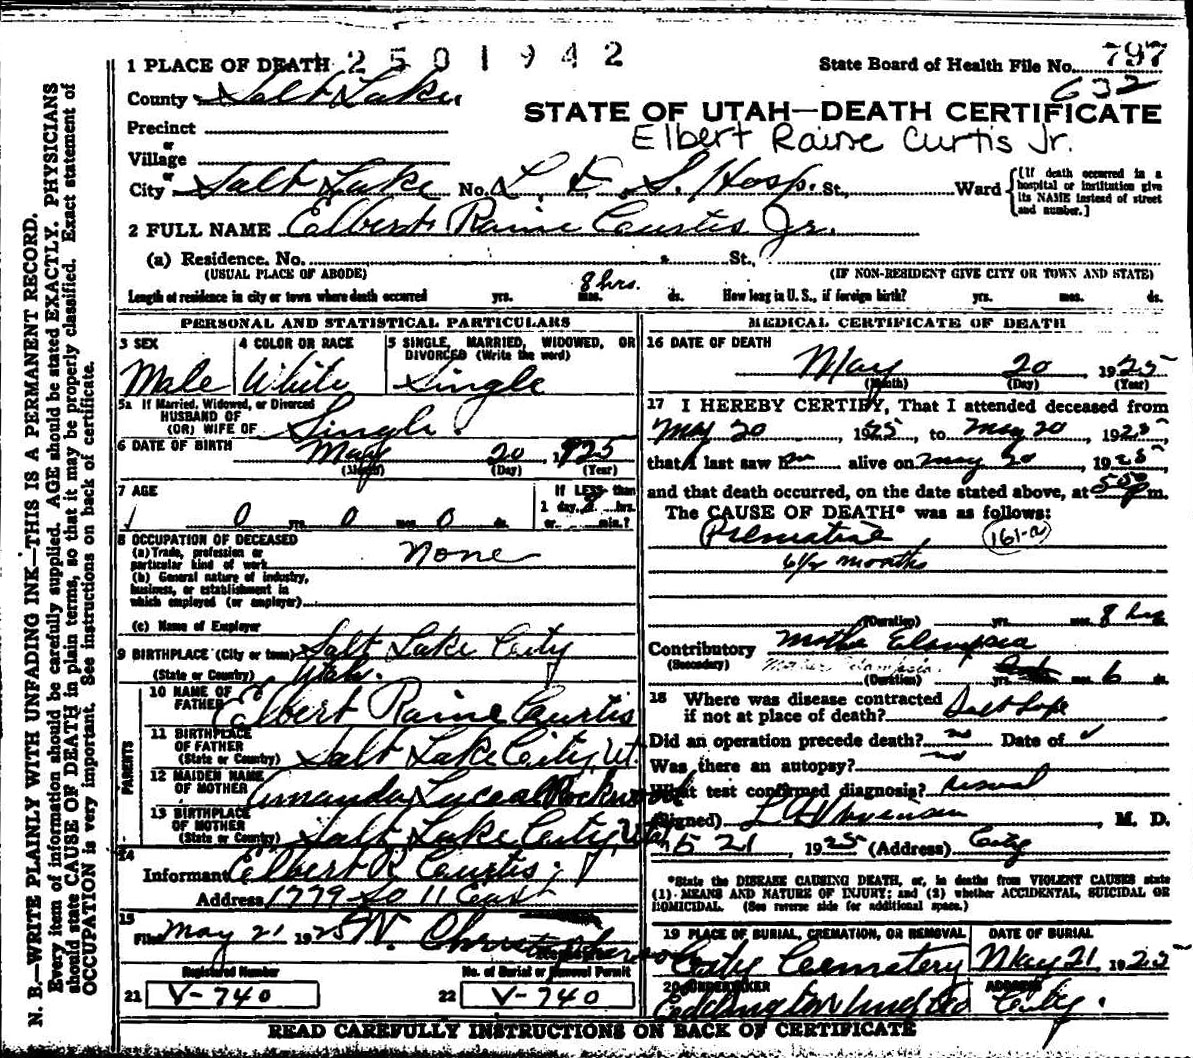 2501942
797
632
1 PLACE OF DEATH
State Board of Health File No.
County Salt Lake
STATE OF UTAH—DEATH CERTIFICATE
Elbert Raine Curtis Jr.
Precinct
or
Village
or
City Salt Lake No. L. D. S. Hosp. St., Ward
[If death occurred in a hospital or institution give its NAME instead of street and number.]
2 FULL NAME Elbert Raine Curtis Jr.
(a) Residence. No. St.,
(USUAL PLACE OF ABODE) (IF NON-RESIDENT GIVE CITY OR TOWN AND STATE)
Length of residence in city or town where death occurred yrs. mos. 8 hrs. ds. How long in U. S., if foreign birth? yrs. mos. ds.
PERSONAL AND STATISTICAL PARTICULARS
3 SEX Male
4 COLOR OR RACE White
5 SINGLE, MARRIED, WIDOWED, OR DIVORCED (Write the word) Single
5a If Married, Widowed, or Divorced
HUSBAND OF
(OR) WIFE OF Single.
6 DATE OF BIRTH May 20 1925
(Month) (Day) (Year)
7 AGE 0 yrs. 0 mos. 0 ds.
If LESS than
1 day, 8 hrs.
or min.?
8 OCCUPATION OF DECEASED
(a) Trade, profession or particular kind of work None
(b) General nature of industry, business, or establishment in which employed (or employer)
(c) Name of Employer
9 BIRTHPLACE (City or town) Salt Lake City
(State or Country) Utah.
PARENTS
10 NAME OF FATHER Elbert Raine Curtis
11 BIRTHPLACE OF FATHER
(State or Country) Salt Lake City, Ut.
12 MAIDEN NAME OF MOTHER Amanda Luceal Rockwood
13 BIRTHPLACE OF MOTHER
(State or Country) Salt Lake City, Utah
14
Informant Elbert R Curtis
Address 1779 So 11 East
15
Filed May 21 1925
Registrar
Registered Number
21 V-740
No. of Burial or Removal Permit
22 V-740
MEDICAL CERTIFICATE OF DEATH
16 DATE OF DEATH
May 20 1925
(Month) (Day) (Year)
17 I HEREBY CERTIFY, That I attended deceased from
May 20, 1925, to May 20, 1925,
that I last saw him alive on May 20, 1925,
and that death occurred, on the date stated above, at 5:50 p m.
The CAUSE OF DEATH* was as follows:
Premature 161-a
6 1/2 months
(Duration) yrs. mos. 8 hrs
Contributory Mother Elampsia
(Secondary) Mother Elampsia
(Duration) yrs. mos. 6 ds.
18 Where was disease contracted
if not at place of death? Salt Lake
Did an operation precede death? no Date of
Was there an autopsy? no
What test confirmed diagnosis? usual
(Signed) , M. D.
5 21, 1925 (Address) City
*State the DISEASE CAUSING DEATH, or, in deaths from VIOLENT CAUSES state
(1). MEANS AND NATURE OF INJURY; and (2) whether ACCIDENTAL, SUICIDAL OR
HOMICIDAL. (See reverse side for additional space.)
19 PLACE OF BURIAL, CREMATION, OR REMOVAL City Cemetery
DATE OF BURIAL May 21 1925
20 UNDERTAKER
ADDRESS City.
READ CAREFULLY INSTRUCTIONS ON BACK OF CERTIFICATE
N. B.—WRITE PLAINLY WITH UNFADING INK—THIS IS A PERMANENT RECORD.
Every item of information should be carefully supplied. AGE should be stated EXACTLY. PHYSICIANS
should state CAUSE OF DEATH in plain terms, so that it may be properly classified. Exact statement of
OCCUPATION is very important. See instructions on back of certificate.